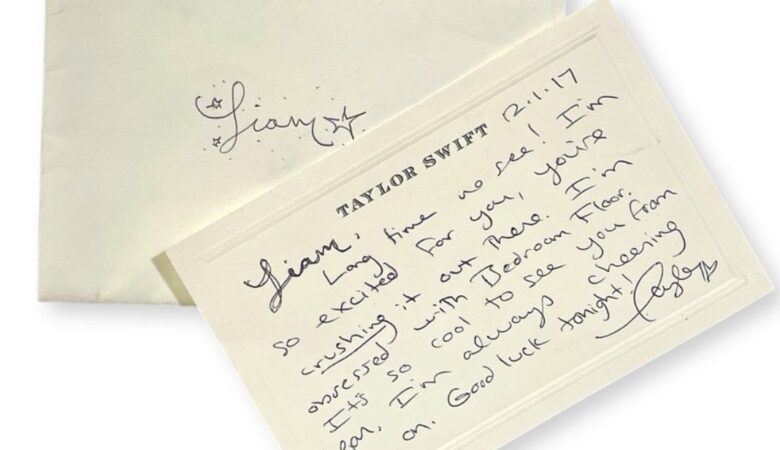 Liam
TAYLOR SWIFT
12.1.17
Liam,
Long time no see! I'm
so excited for you, you're
crushing it out there. I'm
obsessed with Bedroom Floor.
It's so cool to see you from
I'm always cheering
on. Good luck tonight!
Taylor